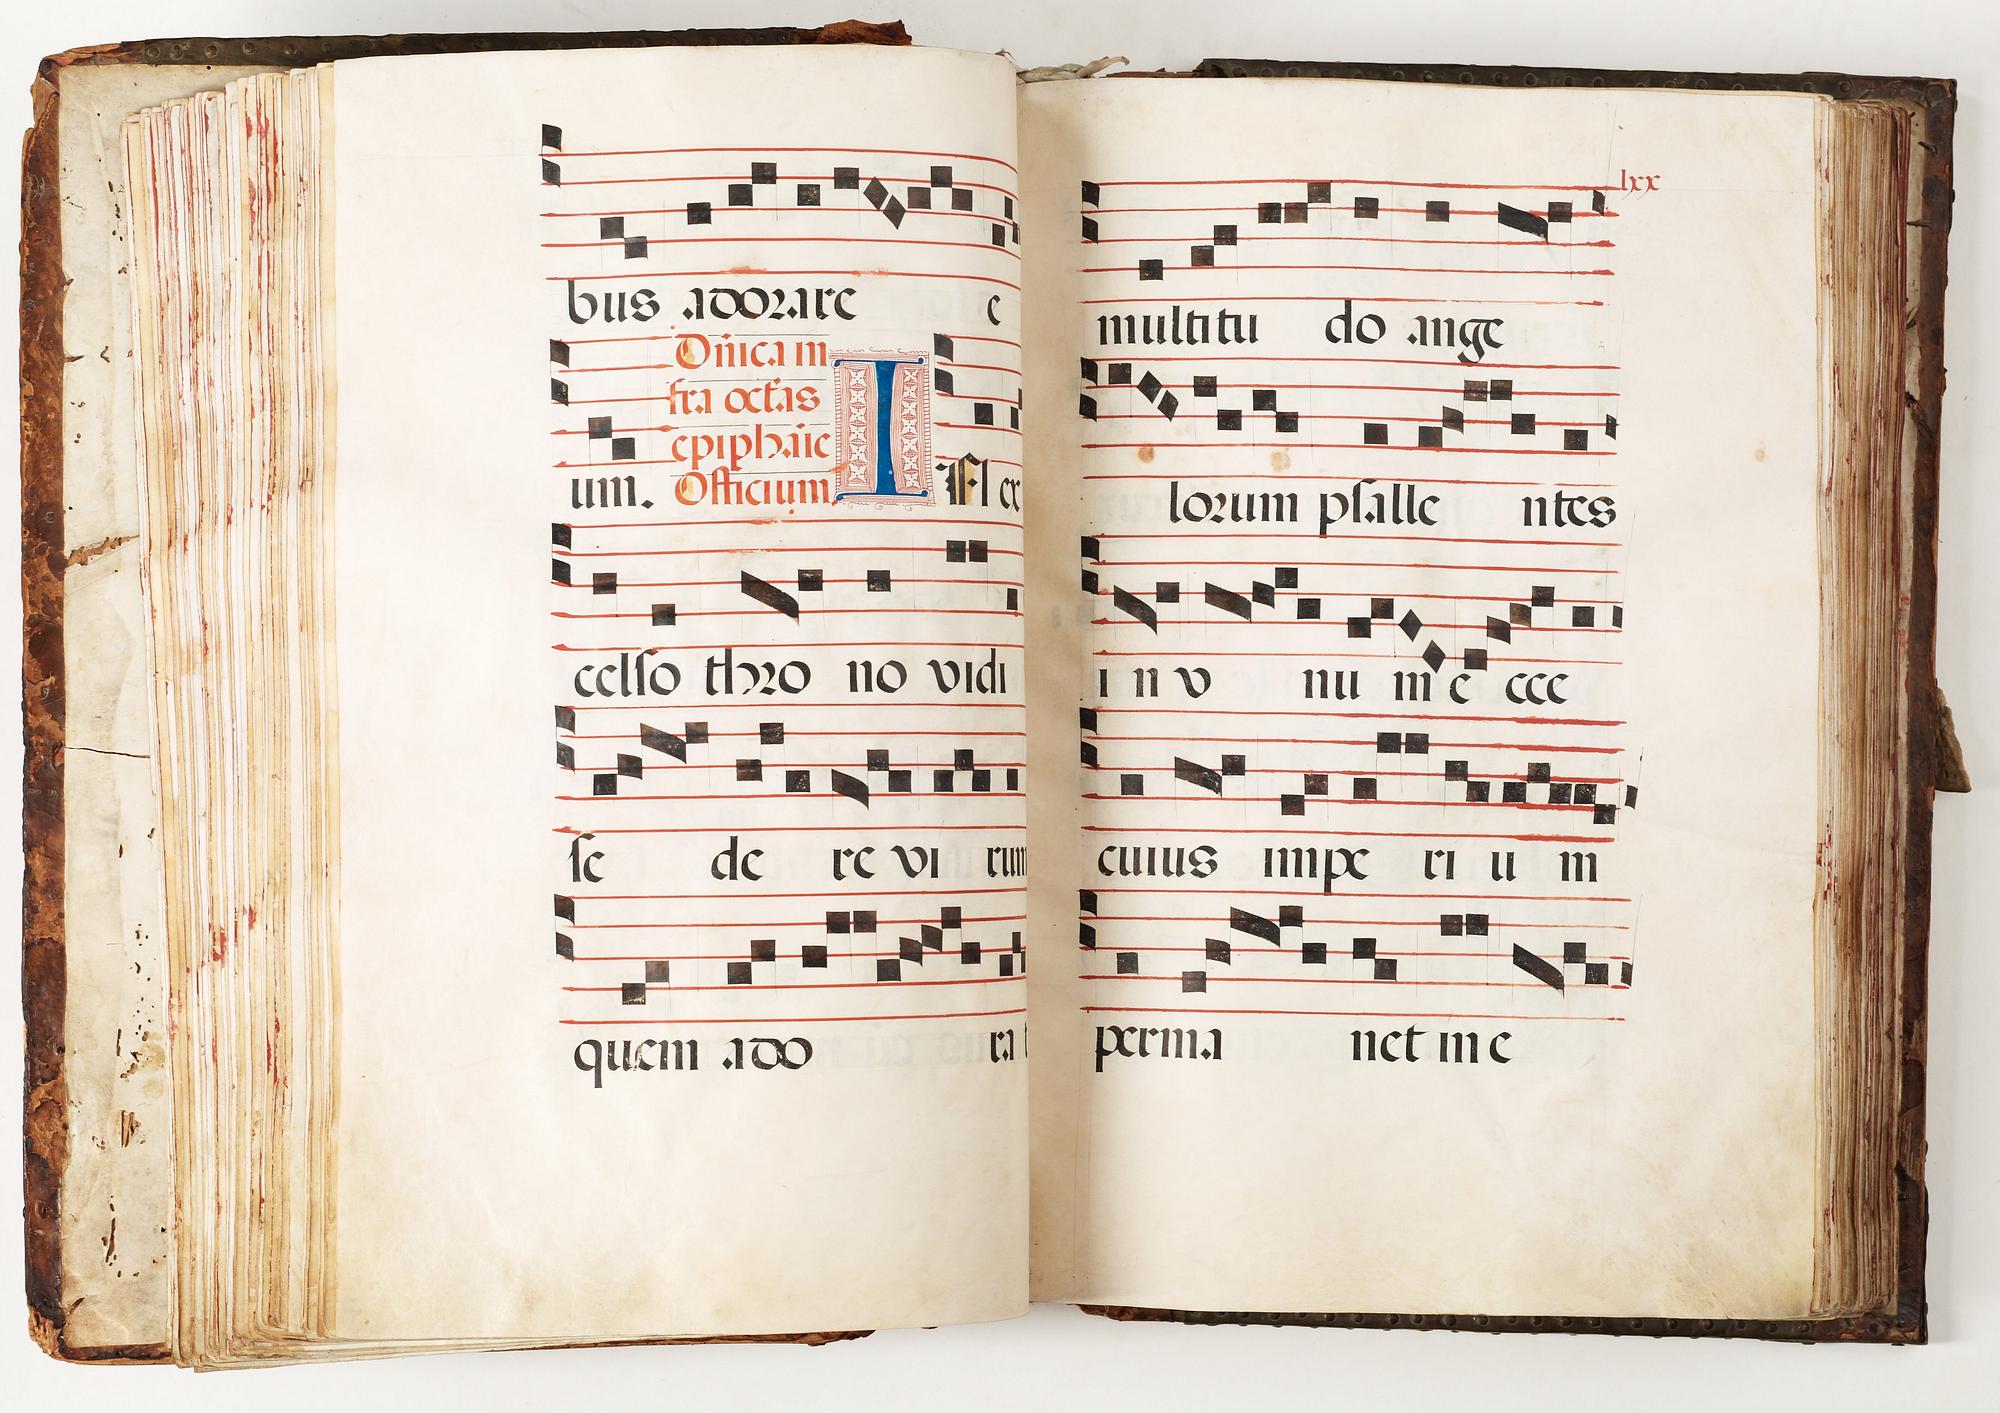 bus adorare e
um.
Dñica in
fra octas
epiphaie
Officium
In ex
celso thro no vidi
se de re vi rum
quem ado ra t
lxx
multitu do ange
lorum psalle ntes
i n v nu m e cce
cuius impe ri u m
perma net in e